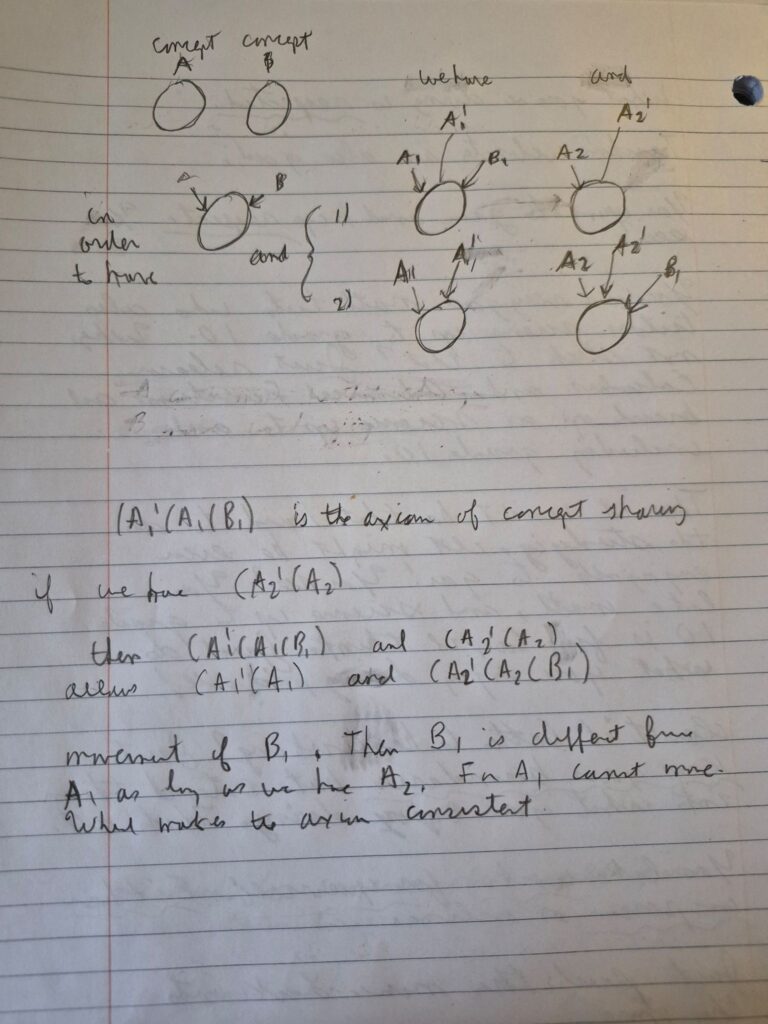 concept concept
A B
we have and
A₁' A₂'
A₁ B₁ A2
A B
in order to have
and
1)
2)
A₁ A₁' A2 A2' B₁
(A₁'(A₁(B₁) is the axiom of concept sharing
if we have (A₂'(A₂)
then (A₁'(A₁(B₁) and (A₂'(A₂)
allows (A₁'(A₁) and (A₂'(A₂(B₁)
movement of B₁. Then B₁ is different from
A₁ as long as we have A₂. For A₁ cannot move.
What makes the axiom consistent.